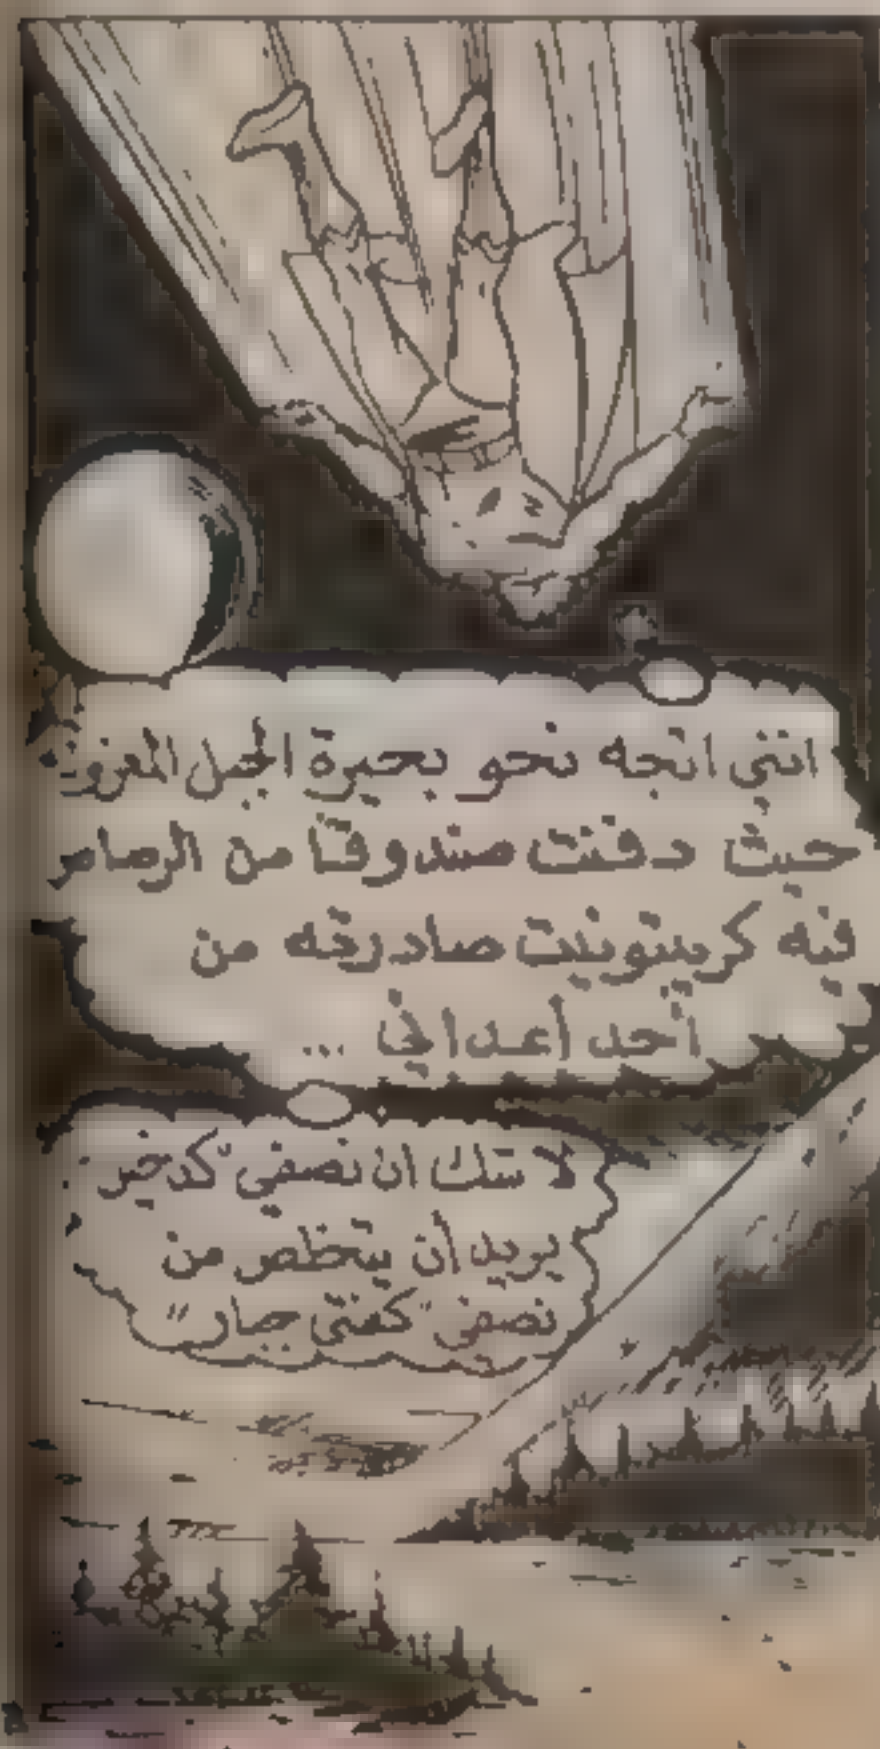 انني اتجه نحو بحيرة الجبل المعزول
حيث دفنت صندوقاً من الرصاص
فيه كريبتونيت صادرته من
أحد أعدائي ...
لا شك ان نصفي "كدخيل"
يريد أن يتخلص من
نصفي "كفتى جبار"